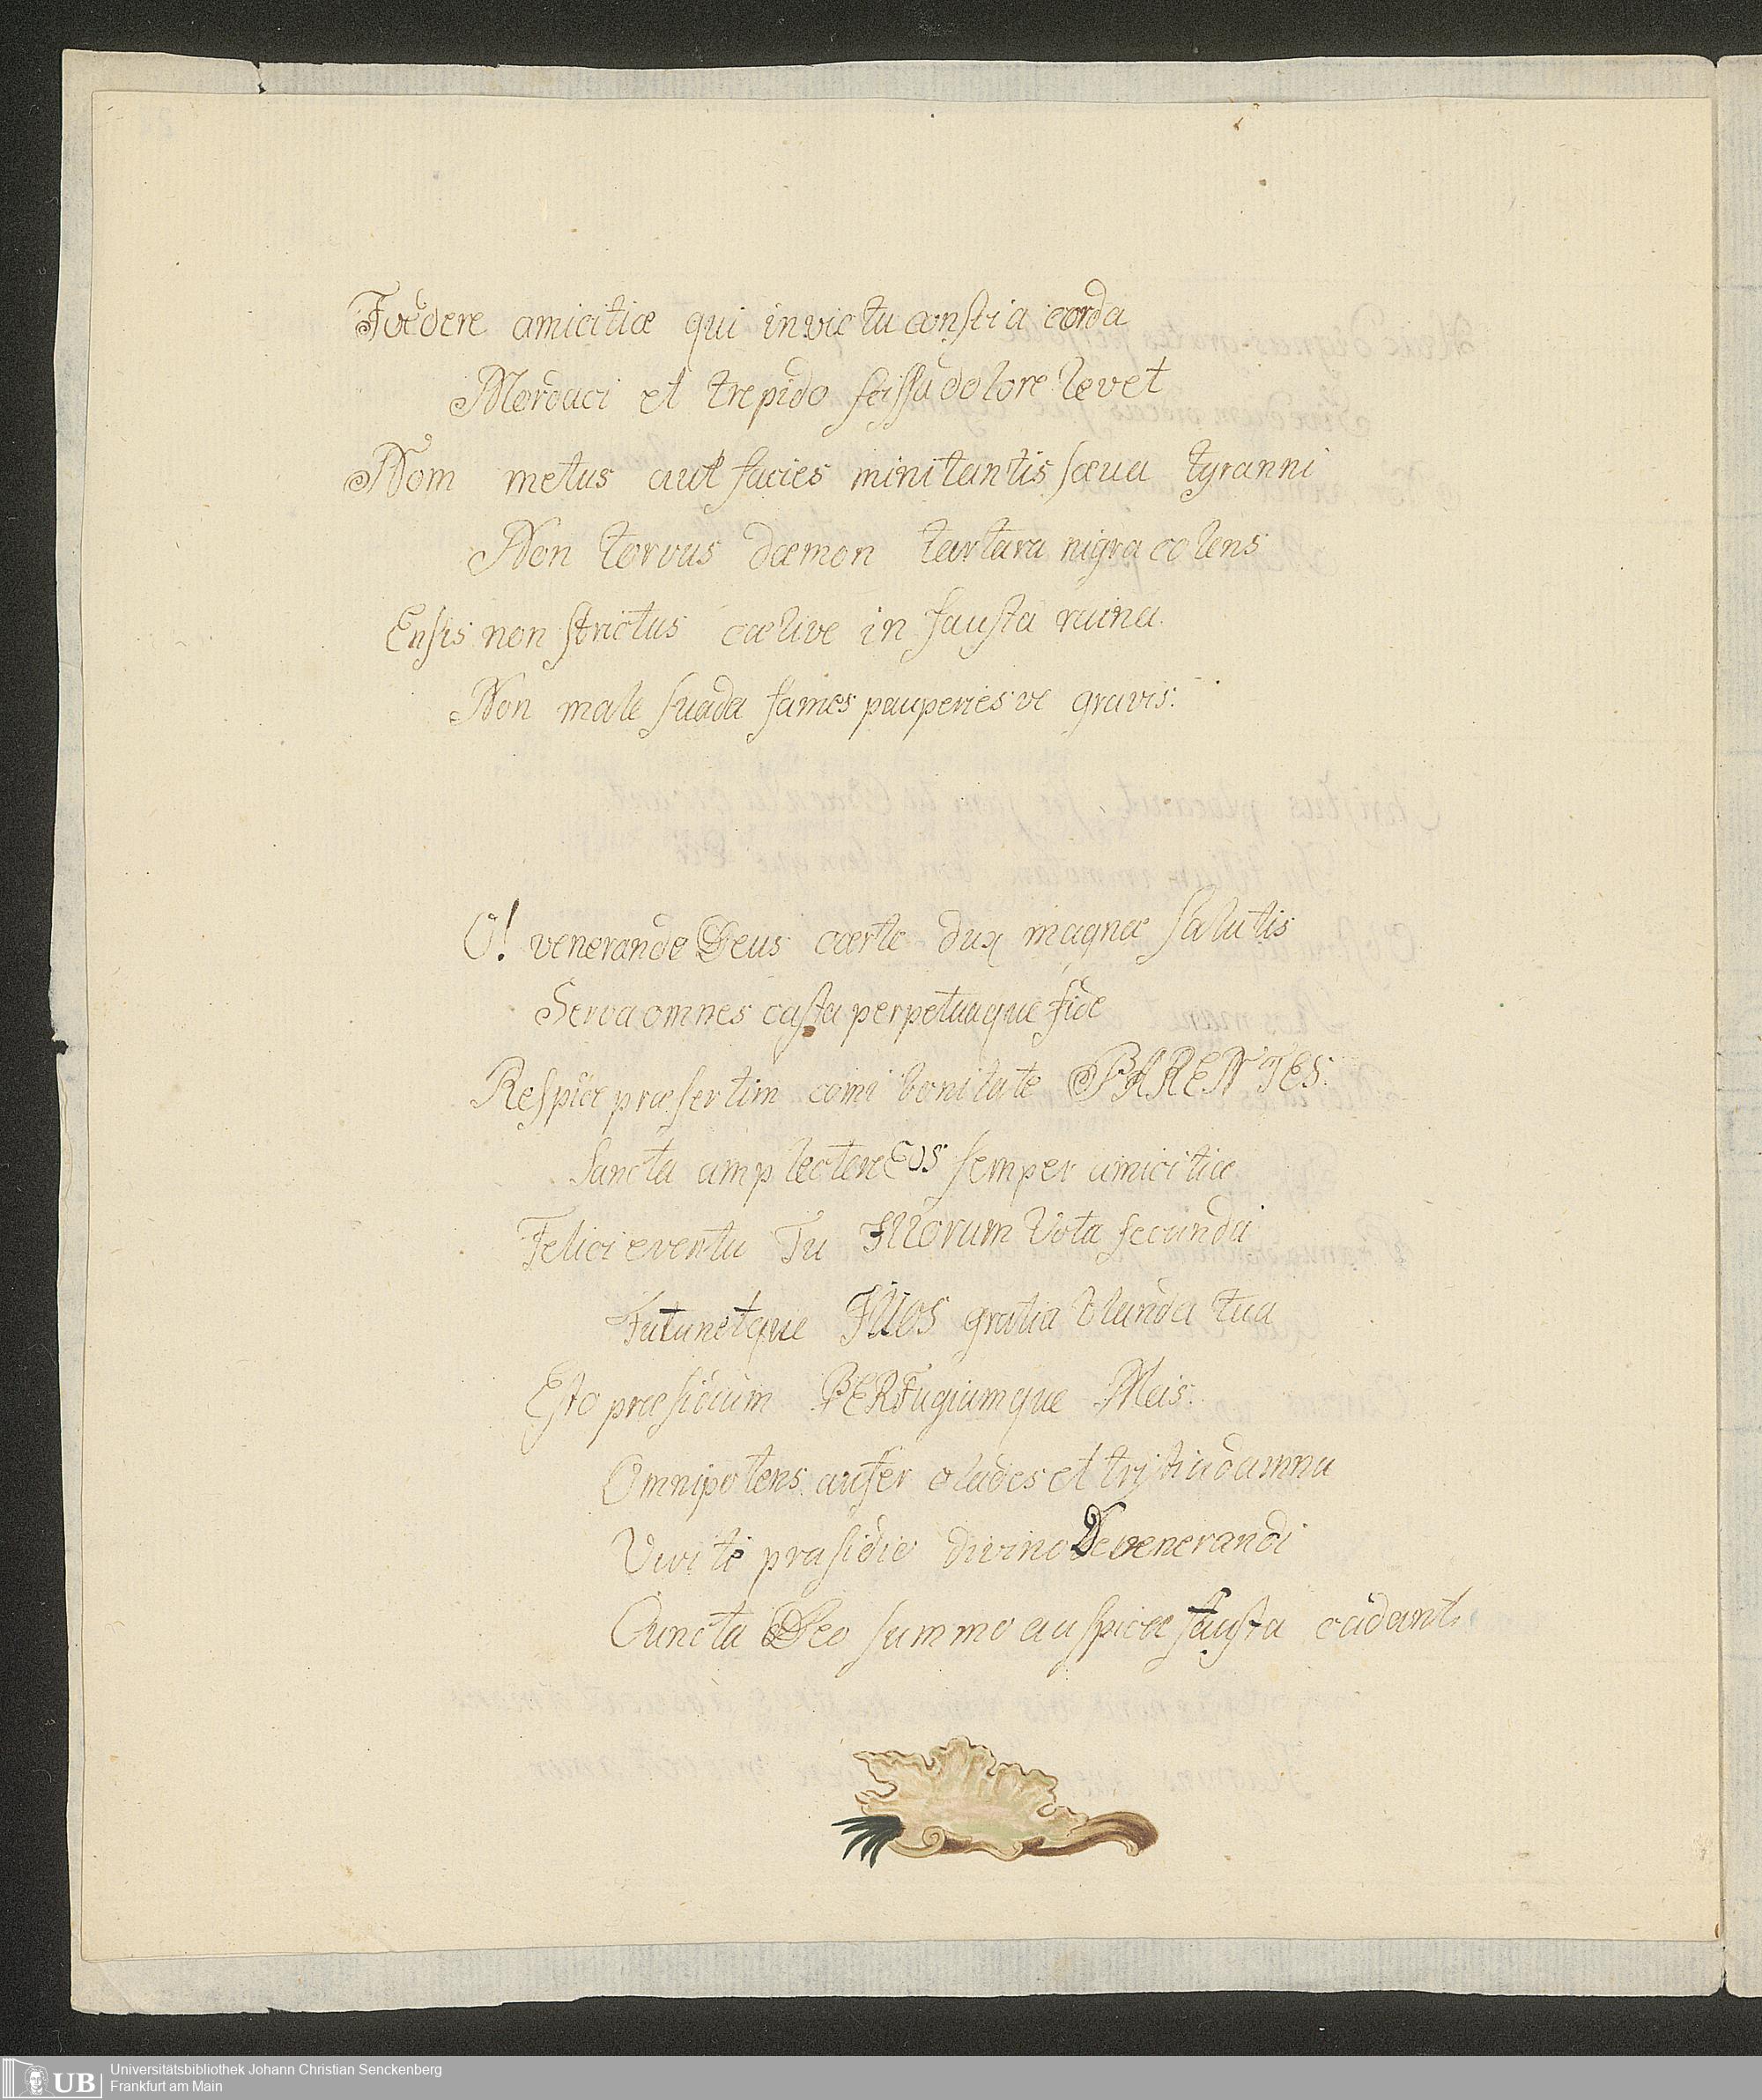 Foedere amicitiæ qui invictu constia corda
Mordaci et trepido scissa dolore levet
Nom metus aut facies minitantis sæua tyranni
Non torvus dæmon tartara nigra colens
Ensis non strictus cælive in fausta ruina.
Non male suada fames pauperies ve gravis.
O! venerande Deus cærte dux magnæ salutis
Serva omnes casta perpetuaque fide
Respice præsertim comi bonitate PARENTES.
Sancta amplectere EOS semper amicitiæ
Felici eventu Tu Illorum Vota secunda
Futunetque IllOS gratia blanda tua
Esto præsidium PERFugiumque Meis.
Omnipotens aufer clades et tristia damna
Vivite prasidio divino De venerandi
Cuncta Deo summo auspice fausta cadant.
UB Universitätsbibliothek Johann Christian Senckenberg
Frankfurt am Main